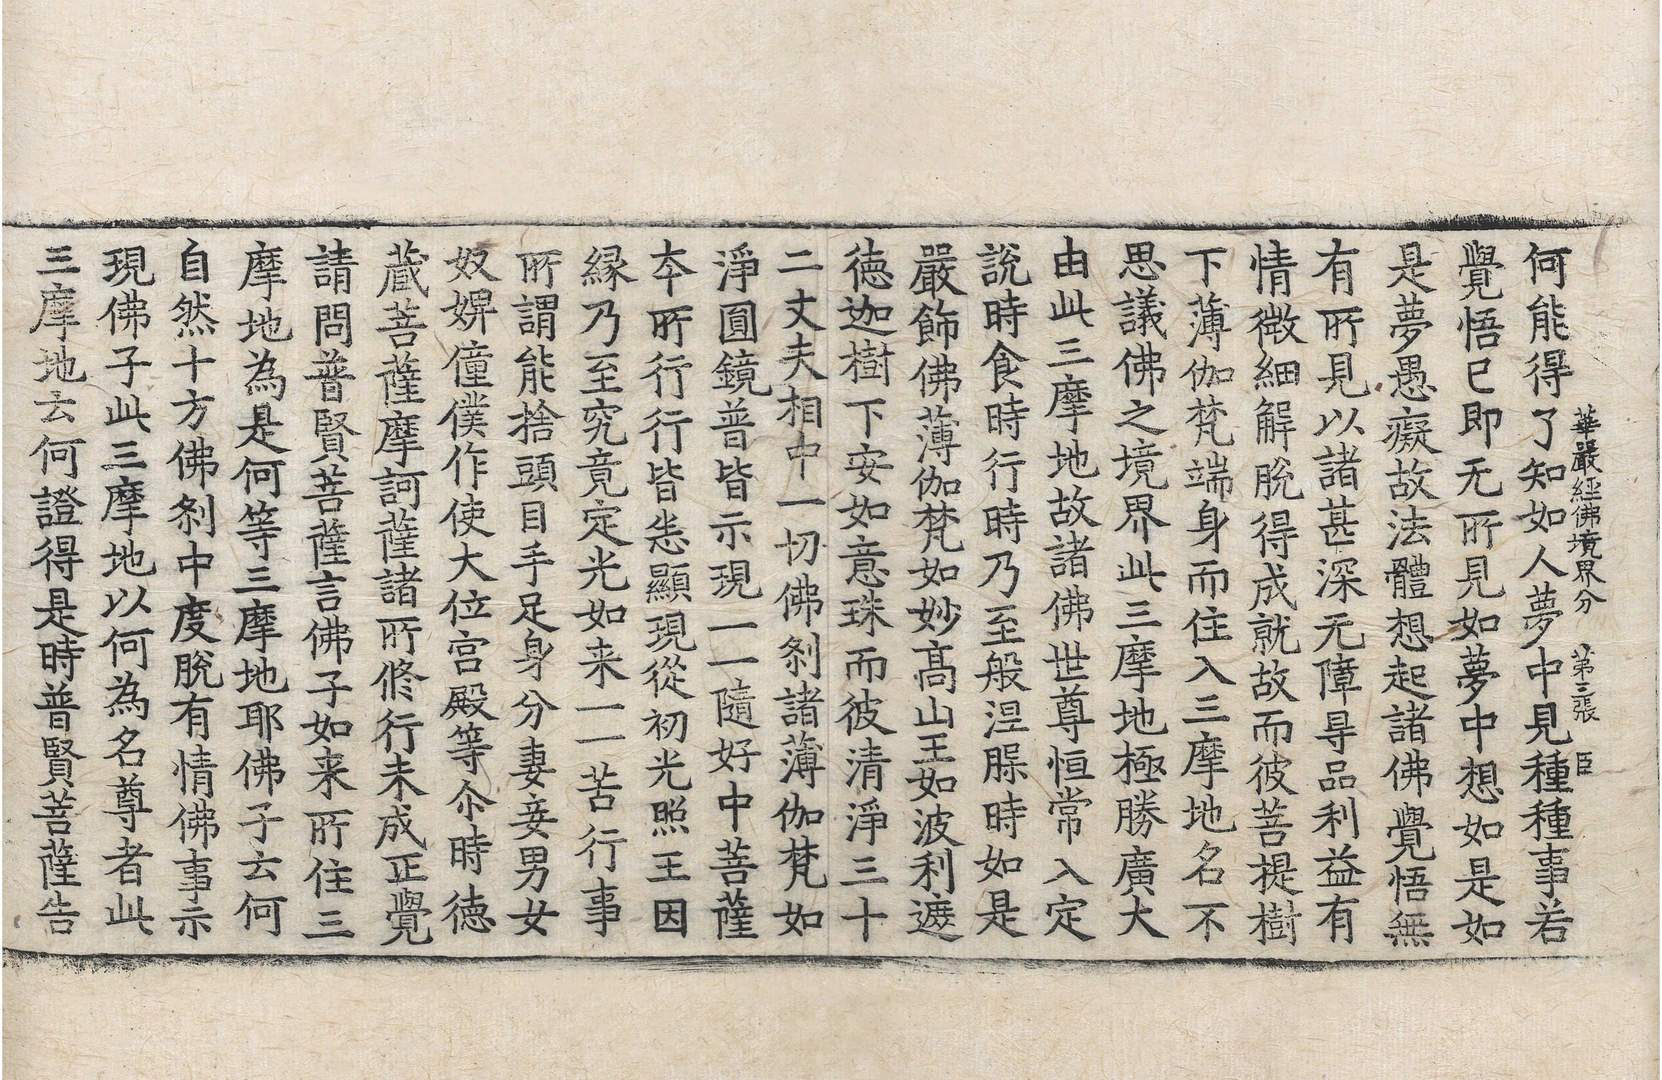 華嚴經佛境界分　第三張　臣
何能得了知如人夢中見種種事若
覺悟已即无所見如夢中想如是如
是夢愚癡故法體想起諸佛覺悟無
有所見以諸甚深无障㝵品利益有
情微細解脫得成就故而彼菩提樹
下薄伽梵端身而住入三摩地名不
思議佛之境界此三摩地極勝廣大
由此三摩地故諸佛世尊恒常入定
說時食時行時乃至般涅槃時如是
嚴飾佛薄伽梵如妙高山王如波利遮
德迦樹下安如意珠而彼清淨三十
二丈夫相中一切佛剎諸薄伽梵如
淨圓鏡普皆示現一一隨好中菩薩
本所行行皆悉顯現從初光照王因
緣乃至究竟定光如来一一苦行事
所謂能捨頭目手足身分妻妾男女
奴婢僮僕作使大位宮殿等尒時德
藏菩薩摩訶薩諸所修行未成正覺
請問普賢菩薩言佛子如来所住三
摩地為是何等三摩地耶佛子云何
自然十方佛剎中度脫有情佛事示
現佛子此三摩地以何為名尊者此
三摩地云何證得是時普賢菩薩告